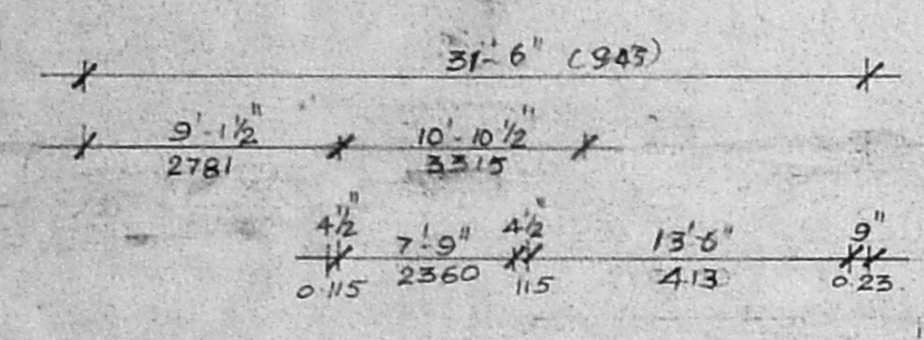 31'-6" (945)
9'-1½" 10'-10½"
2781 3315
4½" 7'-9" 4½" 13'-6" 9"
0.115 2360 115 4.13 0.23